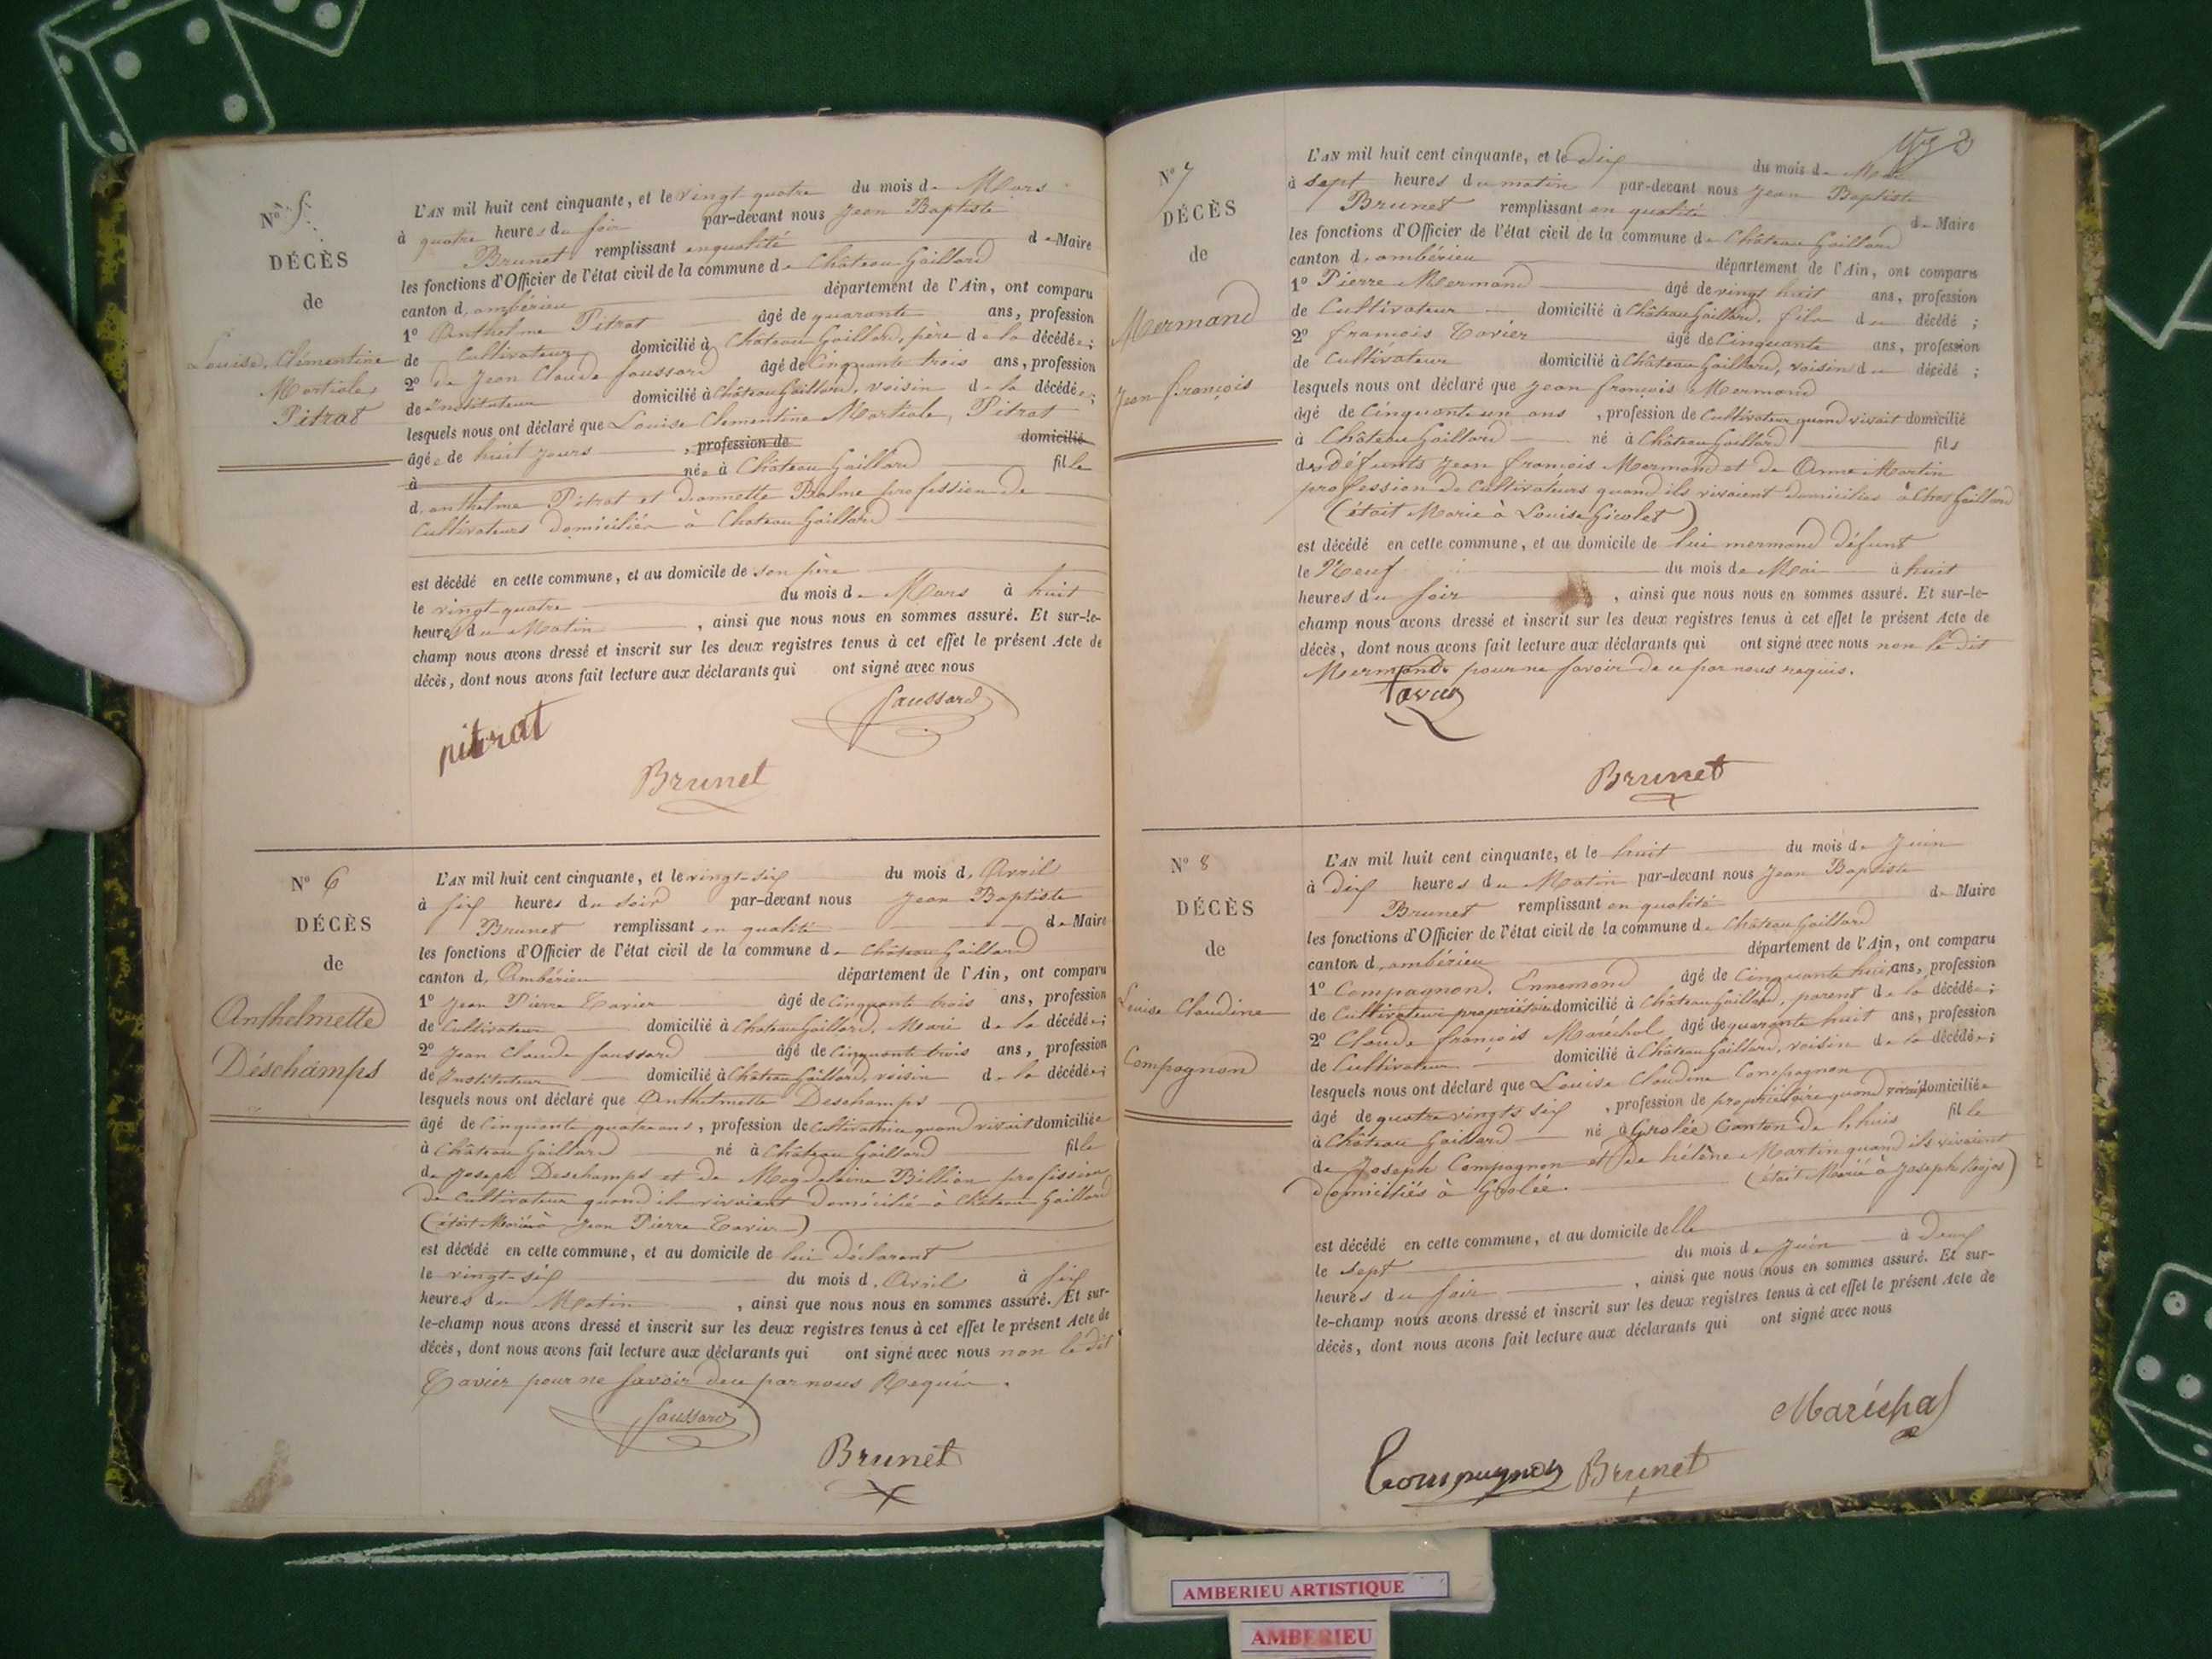 N° 5.
DÉCÈS
de
Louise, Clémentine
Martiale
Pitrat
L'AN mil huit cent cinquante, et le vingt quatre du mois de Mars
à quatre heures du soir par-devant nous Jean Baptiste
Brunet remplissant en qualité de Maire
les fonctions d'Officier de l'état civil de la commune de Château Gaillard
canton d'ambérieu département de l'Ain, ont comparu
1° Anthelme Pitrat âgé de quarante ans, profession
de Cultivateur domicilié à Château Gaillard, père de la décédée;
2° de Jean Claude Joussard âgé de Cinquante trois ans, profession
de Instituteur domicilié à Château Gaillard, voisin de la décédée;
lesquels nous ont déclaré que Louise Clementine Martiale, Pitrat
âgée de huit jours , profession de domicilié
à née à Château Gaillard fille
d'anthelme Pitrat et d'annette Balme profession de
Cultivateurs domiciliés à Chateau Gaillard
est décédé en cette commune, et au domicile de son père
le vingt quatre du mois de Mars à huit
heures du Matin , ainsi que nous nous en sommes assuré. Et sur-le-
champ nous avons dressé et inscrit sur les deux registres tenus à cet effet le présent Acte de
décès, dont nous avons fait lecture aux déclarants qui ont signé avec nous
Joussard
pitrat
Brunet
N° 6
DÉCÈS
de
Anthelmette
Déschamps
L'AN mil huit cent cinquante, et le vingt-six du mois d'Avril
à six heures du soir par-devant nous Jean Baptiste
Brunet remplissant en qualité de Maire
les fonctions d'Officier de l'état civil de la commune de Château Gaillard
canton d'Ambérieu département de l'Ain, ont comparu
1° Jean Pierre Tavier âgé de Cinquante trois ans, profession
de Cultivateur domicilié à Château Gaillard, Mari de la décédée;
2° Jean Claude Joussard âgé de Cinquante trois ans, profession
de Instituteur domicilié à Château Gaillard, voisin de la décédée;
lesquels nous ont déclaré que Anthelmette Deschamps
âgé de Cinquante quatre ans, profession de Cultivatrice quand vivait domiciliée
à Château Gaillard né à Château Gaillard fille
de Joseph Deschamps et de Magdelaine Billion profession
de Cultivateur quand ils vivaient domiciliés à Château Gaillard
(était Mariée à Jean Pierre Tavier)
est décédé en cette commune, et au domicile de lui déclarant
le vingt-six du mois d'Avril à six
heures du Matin , ainsi que nous nous en sommes assuré. Et sur-
le-champ nous avons dressé et inscrit sur les deux registres tenus à cet effet le présent Acte de
décès, dont nous avons fait lecture aux déclarants qui ont signé avec nous non le dit
Tavier pour ne savoir de ce par nous Requis.
Joussard
Brunet
N° 7
DÉCÈS
de
Mermand
Jean françois
L'AN mil huit cent cinquante, et le dix du mois de Mai
à sept heures du matin par-devant nous Jean Baptiste
Brunet remplissant en qualité de Maire
les fonctions d'Officier de l'état civil de la commune de Château Gaillard
canton d'ambérieu département de l'Ain, ont comparu
1° Pierre Mermand âgé de vingt huit ans, profession
de Cultivateur domicilié à Château Gaillard, fils du décédé;
2° françois Tavier âgé de Cinquante ans, profession
de Cultivateur domicilié à Château Gaillard, voisin du décédé;
lesquels nous ont déclaré que Jean françois Mermand
âgé de Cinquante un ans , profession de Cultivateur quand vivait domicilié
à Château Gaillard né à Château Gaillard fils
des défunts Jean françois Mermand et de Anne Martin
profession de Cultivateurs quand ils vivaient domiciliés à Chat Gaillard
(était Marié à Louise Gicolet)
est décédé en cette commune, et au domicile de lui mermand défunt
le Neuf du mois de Mai à huit
heures du soir , ainsi que nous nous en sommes assuré. Et sur-le-
champ nous avons dressé et inscrit sur les deux registres tenus à cet effet le présent Acte de
décès, dont nous avons fait lecture aux déclarants qui ont signé avec nous non le dit
Mermand pour ne savoir de ce par nous requis.
Tavier
Brunet
N° 8
DÉCÈS
de
Louise Claudine
Compagnon
L'AN mil huit cent cinquante, et le huit du mois de Juin
à dix heures du Matin par-devant nous Jean Baptiste
Brunet remplissant en qualité de Maire
les fonctions d'Officier de l'état civil de la commune de Château Gaillard
canton d'ambérieu département de l'Ain, ont comparu
1° Compagnon, Ennemond âgé de Cinquante huit ans, profession
de Cultivateur propriétaire domicilié à Château Gaillard, parent de la décédée;
2° Claude françois Maréchal âgé de quarante huit ans, profession
de Cultivateur domicilié à Château Gaillard, voisin de la décédée;
lesquels nous ont déclaré que Louise Claudine Compagnon
âgé de quatre vingts six , profession de propriétaire quand vivait domiciliée
à Château Gaillard né à Grolée Canton de Lhuis fille
de Joseph Compagnon et de hélène Martin quand ils vivaient
domiciliés à Grolée. (était Marié à Joseph)
est décédé en cette commune, et au domicile delle
le sept du mois de Juin à Deux
heures du soir , ainsi que nous nous en sommes assuré. Et sur-
le-champ nous avons dressé et inscrit sur les deux registres tenus à cet effet le présent Acte de
décès, dont nous avons fait lecture aux déclarants qui ont signé avec nous
Maréchal
Compagnon Brunet
AMBERIEU ARTISTIQUE
AMBERIEU